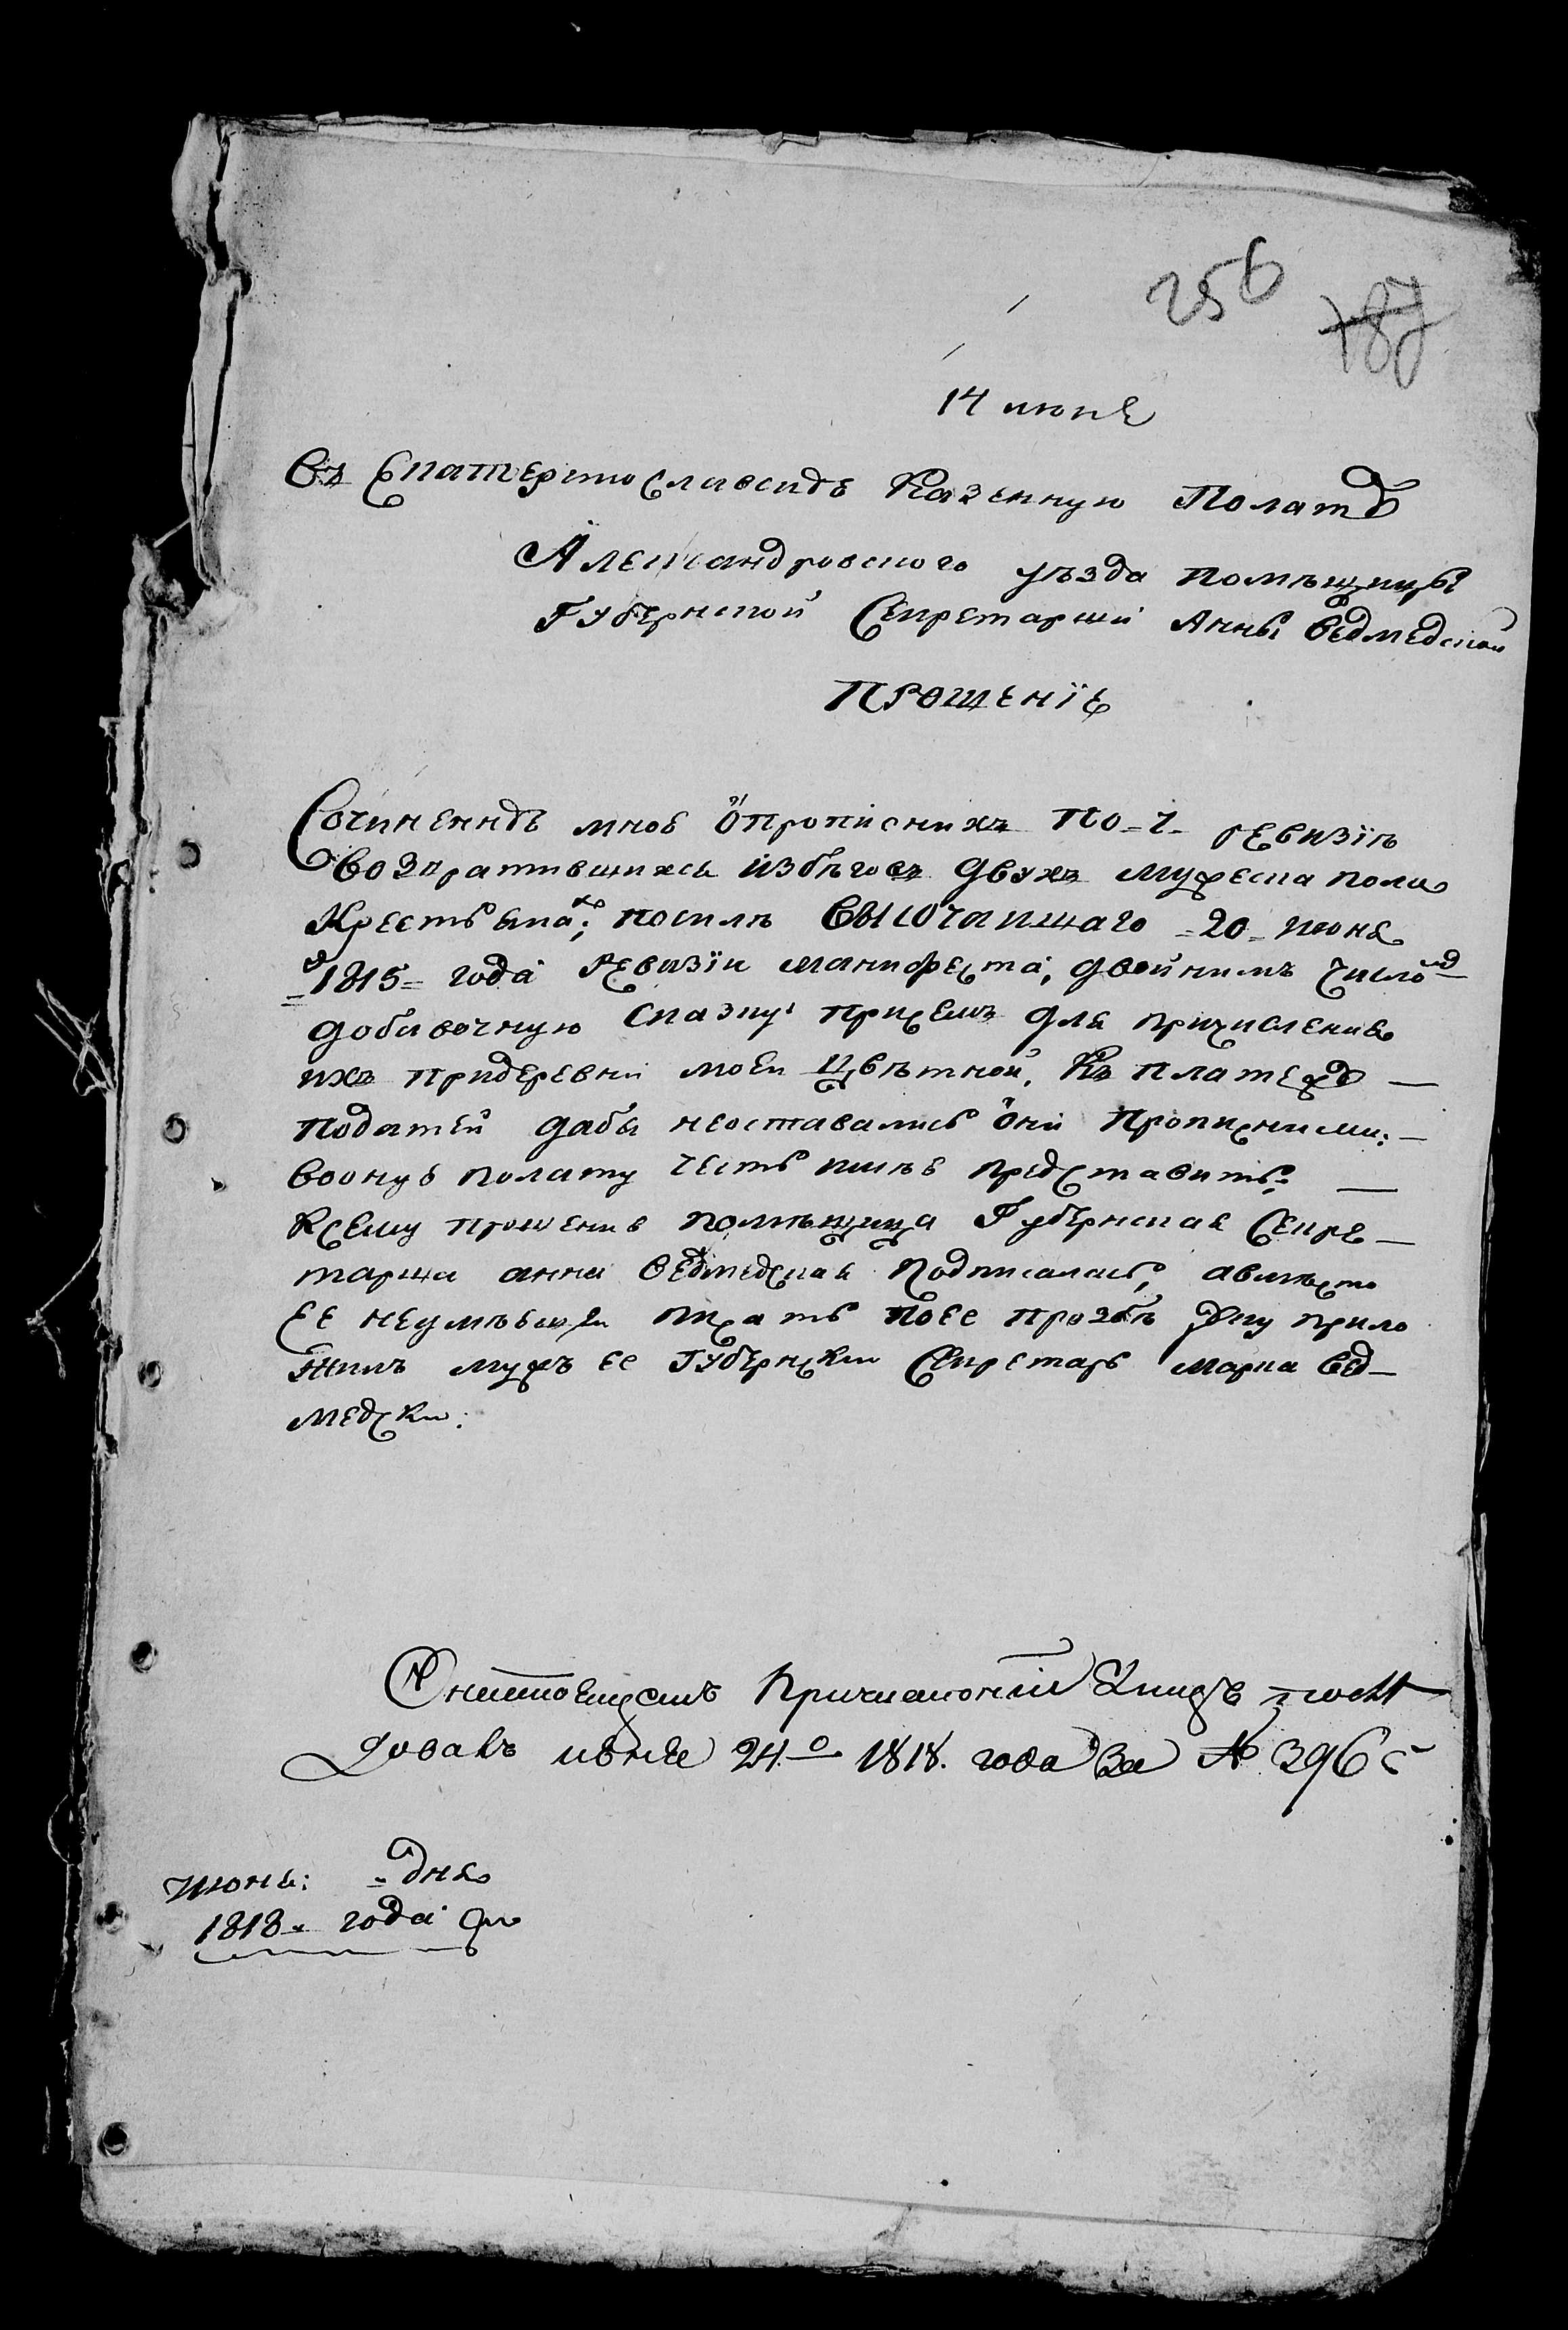 256 787
14 июня
Въ Екатеринославскую Казенную Полату
Александровского уѣзда помѣщицы
Губернской Секретарши Анны Ведмедской
Прошеніе
Сочиненную мною о прописнихъ по 7 ревизіѣ
возвратившихся избѣговъ двухъ мужеска пола
крестьянахъ; посилѣ Высочаишаго 20 июня
1815 года ревизіи манифеста, двойнимъ число
добавочную сказку при семъ для причисления
ихъ придеревни моеи Цвѣтной, къ платежу
податей дабы неоставались они прописними:
вооную полату честь имѣю представить:
Ксему прошению помѣщица Губернская Секре-
тарша анна Ведмедская подписалась, авмѣсто
ее неумѣющей писать поее прозбѣ руку прило
жилъ мужъ ее Губернски Секретарь марка Вед-
медски.
года За № 396
июня: дня
1818 года